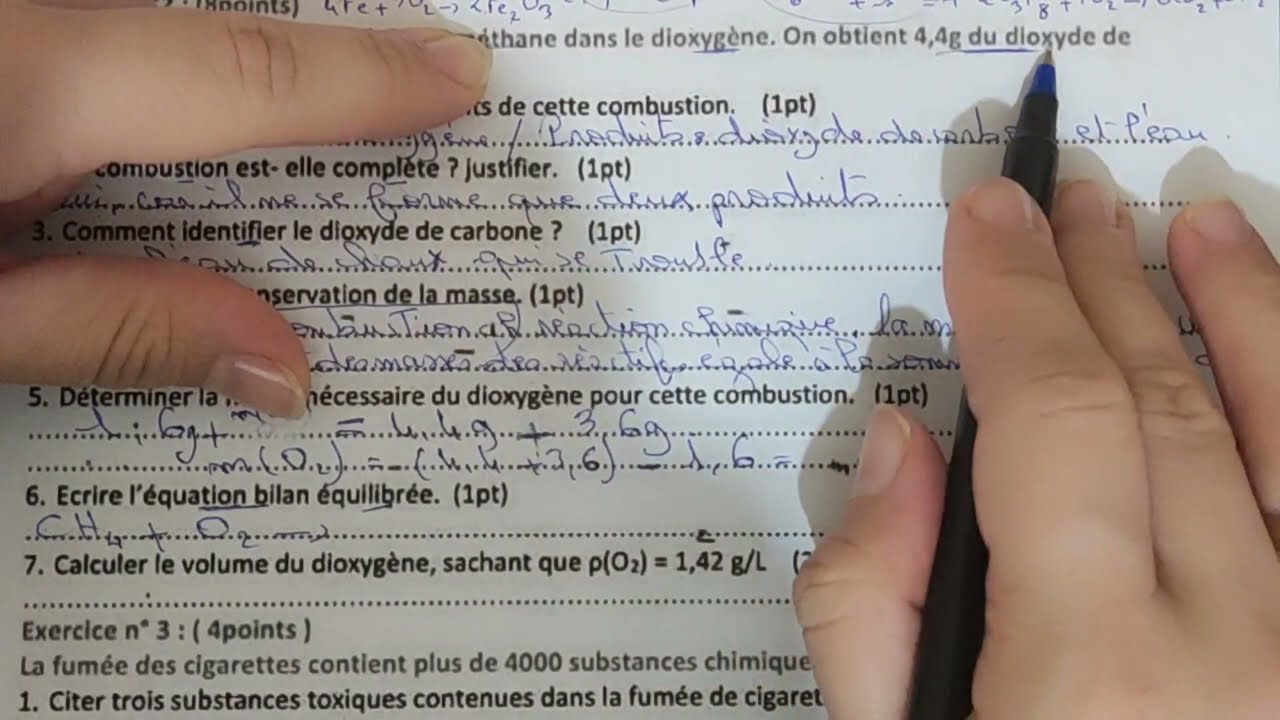 (8points) 4Fe + O₂ → 2Fe₂O₃
éthane dans le dioxygène. On obtient 4,4g du dioxyde de
ts de cette combustion. (1pt)
gène / Produits : dioxyde de carb et l'eau.
combustion est- elle complète ? justifier. (1pt)
ui. car il ne se forme que deux produits.
3. Comment identifier le dioxyde de carbone ? (1pt)
l'eau de chaux qui se trouble
nservation de la masse. (1pt)
combustion réaction chimique, la m
des masses des réactifs égale à la som
5. Déterminer la nécessaire du dioxygène pour cette combustion. (1pt)
1,6g + m = 4,4g + 3,6g
m(O₂) = (4,4 + 3,6) - 1,6 =
6. Ecrire l'équation bilan équilibrée. (1pt)
CH₄ + O₂ →
7. Calculer le volume du dioxygène, sachant que ρ(O₂) = 1,42 g/L
Exercice n° 3 : ( 4points )
La fumée des cigarettes contient plus de 4000 substances chimique
1. Citer trois substances toxiques contenues dans la fumée de cigaret